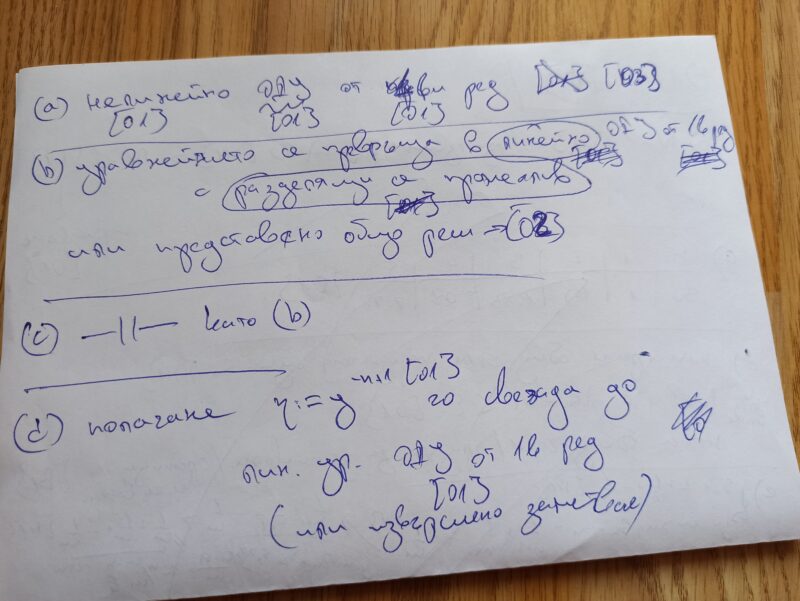 (a) нелинейно ОДУ от първи ред [03]
[01] [01] [01]
(b) уравнението се превръща в линейно ОДУ от 1в ред
с разделящи се променливи
или представено общо реш → [02]
(c) —||— като (b)
(d) полагане η := y^{-n+1} [01] го свежда до
лин. ур. ОДУ от 1в ред
[01]
(или извършено)